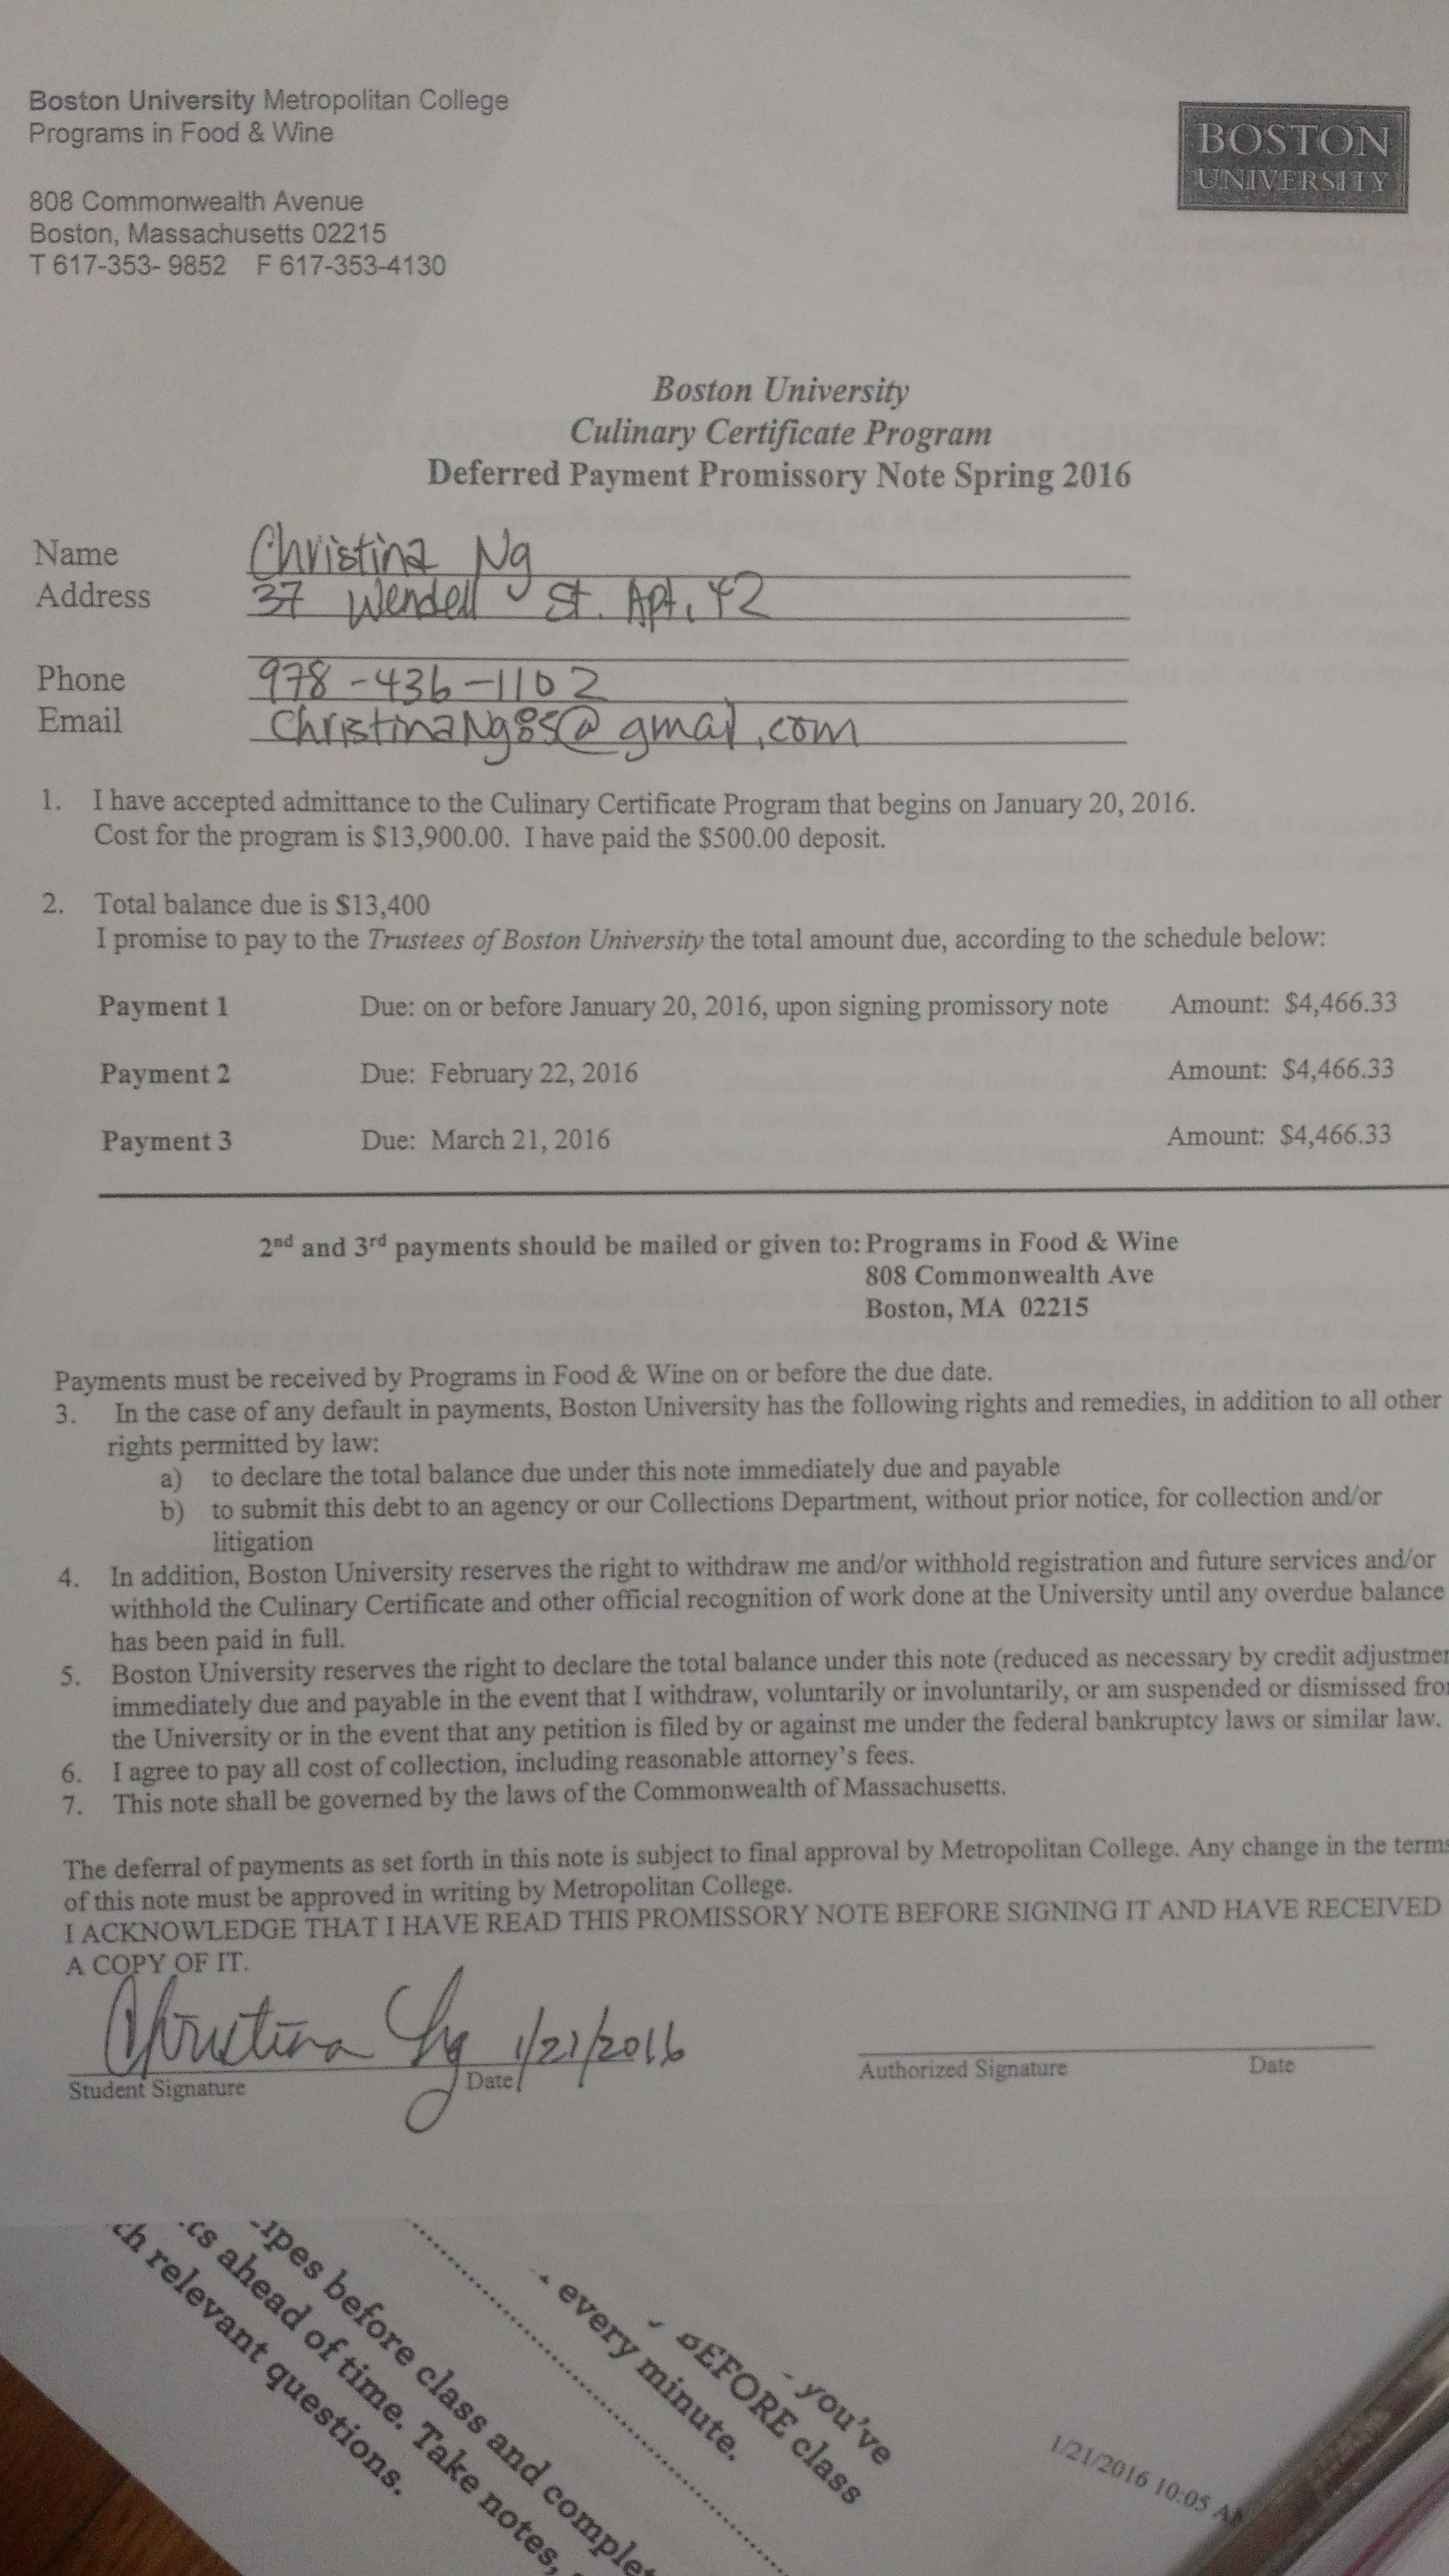 Boston University Metropolitan College
Programs in Food & Wine
BOSTON
UNIVERSITY
808 Commonwealth Avenue
Boston, Massachusetts 02215
T 617-353- 9852 F 617-353-4130
Boston University
Culinary Certificate Program
Deferred Payment Promissory Note Spring 2016
Name Christina Ng
Address 37 Wendell St. Apt. 42
Phone 978-436-1102
Email ChristinaNg85@gmail.com
1. I have accepted admittance to the Culinary Certificate Program that begins on January 20, 2016.
Cost for the program is $13,900.00. I have paid the $500.00 deposit.
2. Total balance due is $13,400
I promise to pay to the Trustees of Boston University the total amount due, according to the schedule below:
Payment 1 Due: on or before January 20, 2016, upon signing promissory note Amount: $4,466.33
Payment 2 Due: February 22, 2016 Amount: $4,466.33
Payment 3 Due: March 21, 2016 Amount: $4,466.33
2nd and 3rd payments should be mailed or given to: Programs in Food & Wine
808 Commonwealth Ave
Boston, MA 02215
Payments must be received by Programs in Food & Wine on or before the due date.
3. In the case of any default in payments, Boston University has the following rights and remedies, in addition to all other
rights permitted by law:
a) to declare the total balance due under this note immediately due and payable
b) to submit this debt to an agency or our Collections Department, without prior notice, for collection and/or
litigation
4. In addition, Boston University reserves the right to withdraw me and/or withhold registration and future services and/or
withhold the Culinary Certificate and other official recognition of work done at the University until any overdue balance
has been paid in full.
5. Boston University reserves the right to declare the total balance under this note (reduced as necessary by credit adjustmen
immediately due and payable in the event that I withdraw, voluntarily or involuntarily, or am suspended or dismissed fro
the University or in the event that any petition is filed by or against me under the federal bankruptcy laws or similar law.
6. I agree to pay all cost of collection, including reasonable attorney's fees.
7. This note shall be governed by the laws of the Commonwealth of Massachusetts.
The deferral of payments as set forth in this note is subject to final approval by Metropolitan College. Any change in the terms
of this note must be approved in writing by Metropolitan College.
I ACKNOWLEDGE THAT I HAVE READ THIS PROMISSORY NOTE BEFORE SIGNING IT AND HAVE RECEIVED
A COPY OF IT.
Christina Ng 1/21/2016
Student Signature Date Authorized Signature Date
you've
BEFORE class
every minute.
ipes before class and complet
ts ahead of time. Take notes,
ch relevant questions.
1/21/2016 10:05 AM